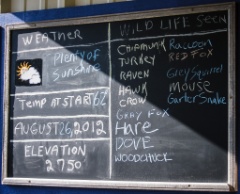 WEATHER
Plenty of
Sunshine
TEMP AT START 62
AUGUST 26, 2012
ELEVATION
2750
WILD LIFE Seen
CHIPMUNK Raccoon
TURKEY RED FOX
RAVEN Grey Squirrel
HAWK MOUSE
CROW Garter Snake
GRAY FOX
Hare
DOVE
WOODCHUCK